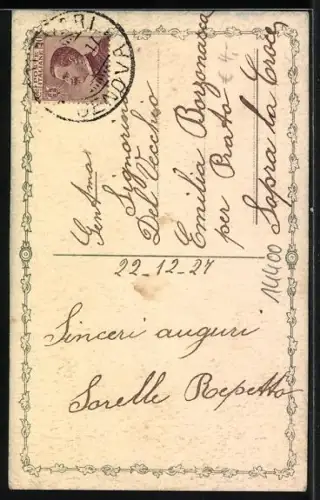 GENOVA
Gent.ma
Signorina
Del Vecchio
Emilia Borzonasca
per Prato
Sopra la Croce
€ 4.-
22-12-27
14400
Sinceri auguri
Sorelle Repetto